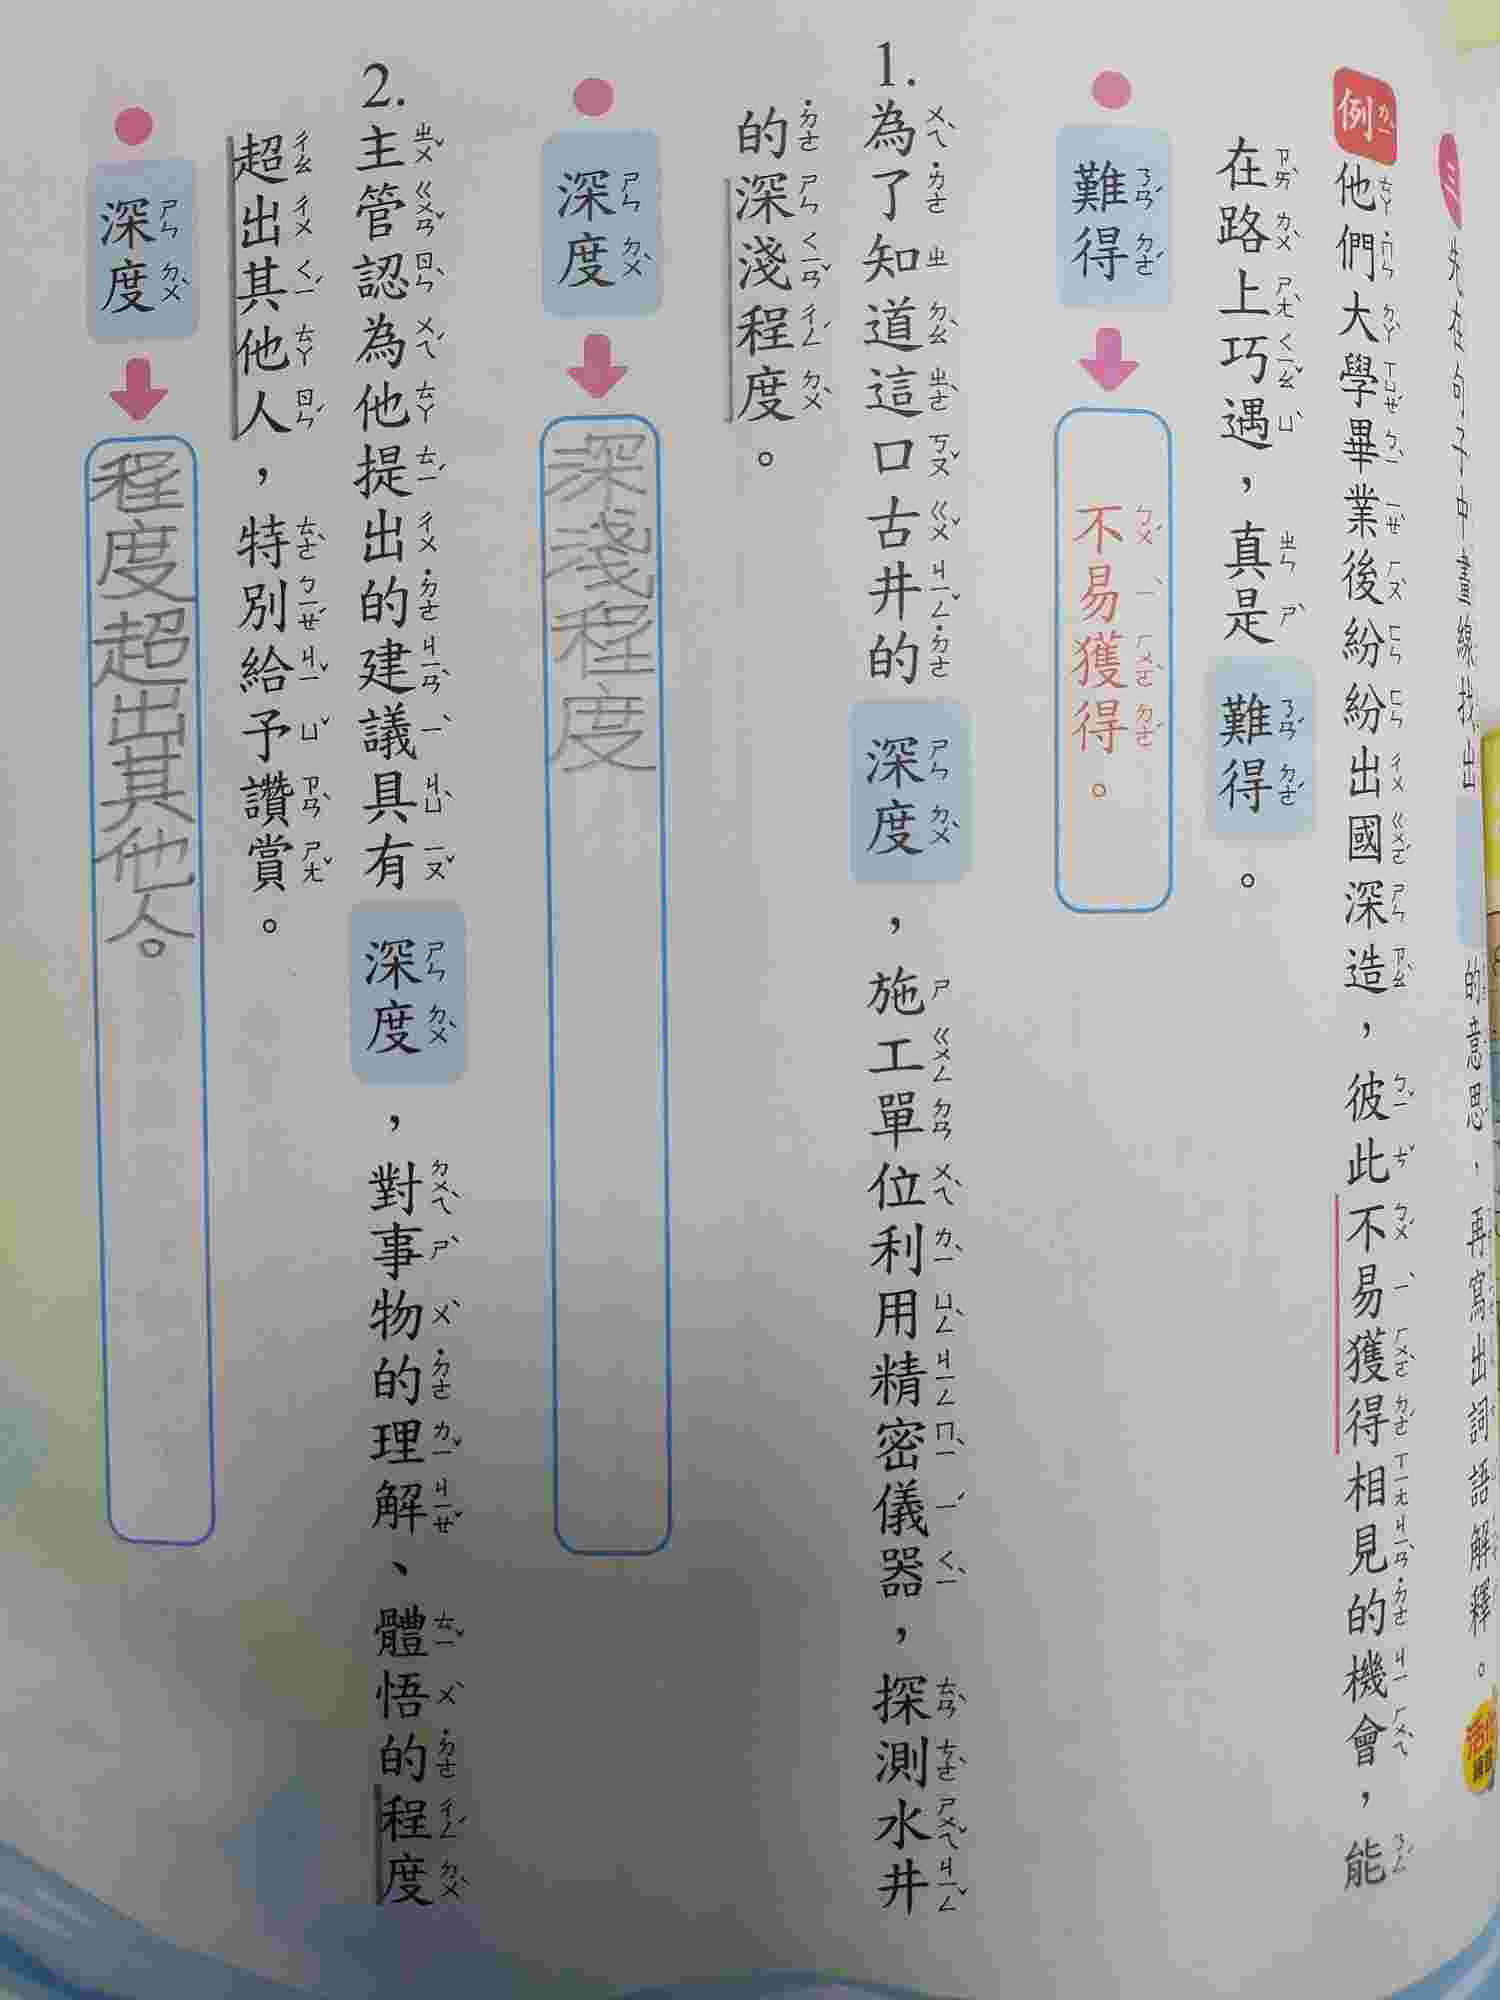 三 先在句子中畫線找出 的意思,再寫出詞語解釋。
例 他們大學畢業後紛紛出國深造,彼此不易獲得相見的機會,能
在路上巧遇,真是難得。
難得
不易獲得。
1.為了知道這口古井的深度,施工單位利用精密儀器,探測水井
的深淺程度。
深度
深淺程度
2.主管認為他提出的建議具有深度,對事物的理解、體悟的程度
超出其他人,特別給予讚賞。
深度
程度超出其他人。